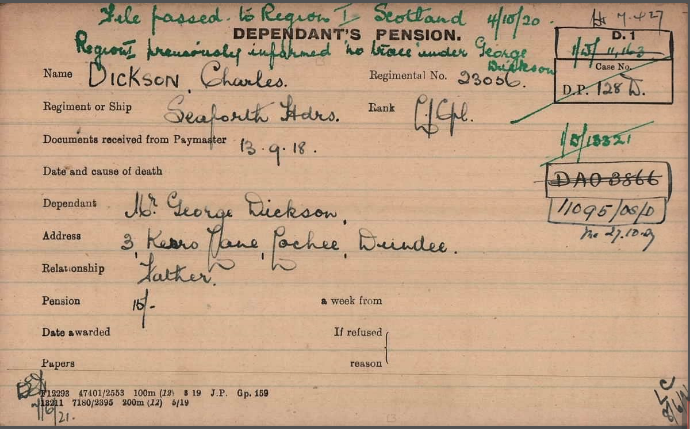 File passed to Region I Scotland 4/10/20.
DEPENDANT'S PENSION.
Region I previously informed 'no trace' under George Dickson
D. 1
1/D/11163
Case No.
D.P. 128 D.
Name DICKSON, Charles.
Regimental No. 23056.
Regiment or Ship Seaforth Hdrs.
Rank L/Cpl.
Documents received from Paymaster 13.9.18.
1/D/13321
Date and cause of death
DAO 3866
Dependant Mr. George Dickson,
11095/
Address 3, Lane, Lochee, Dundee.
Relationship Father.
Pension 15/-
a week from
Date awarded
If refused
Papers
reason
F12293 47401/2553 100m (12) 8 19 J.P. Gp. 159
7180/2395 200m (12) 5/19